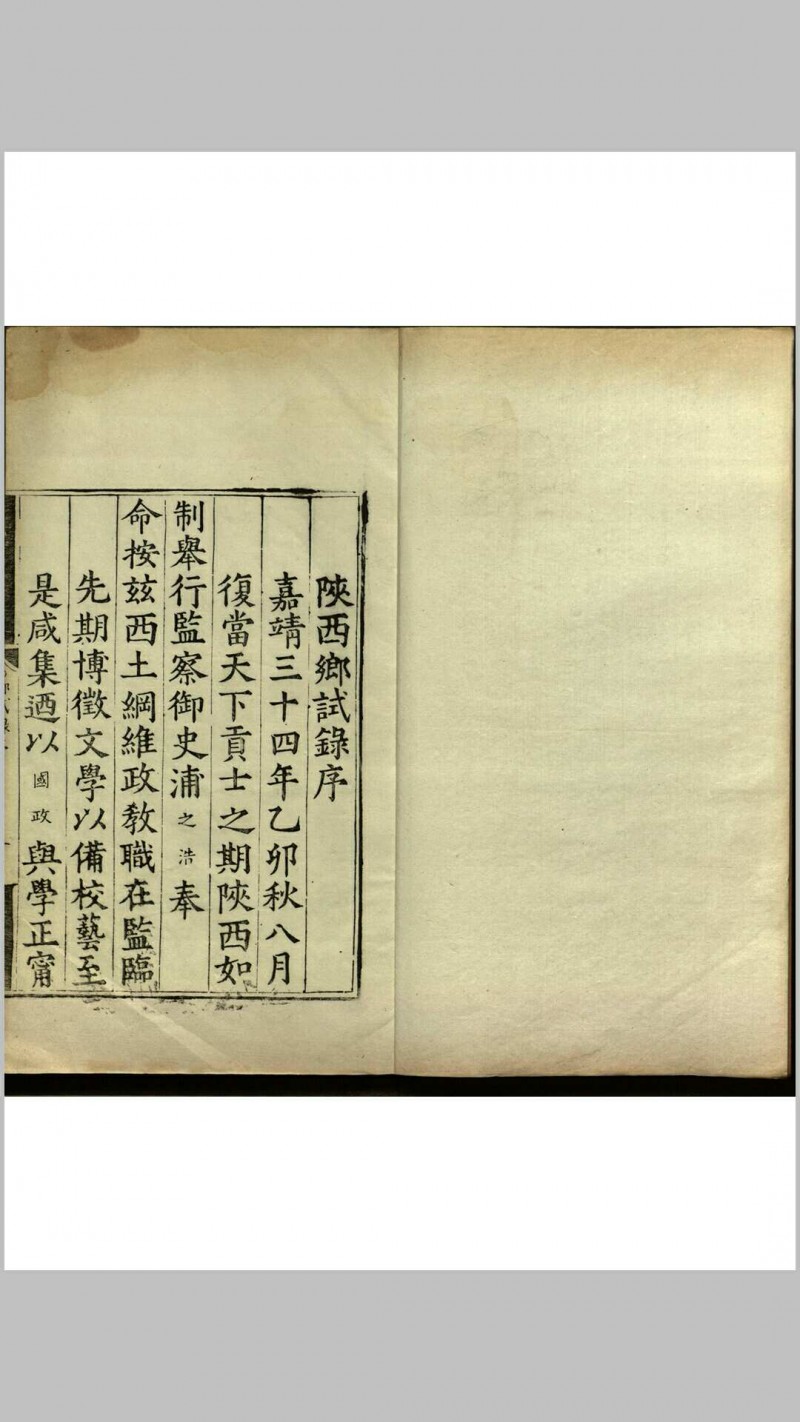 陝西鄉試錄序
嘉靖三十四年乙卯秋八月
復當天下貢士之期陝西如
制舉行監察御史浦之浩奉
命按玆西土綱維政教職在監臨
先期博徵文學以備校藝至
是咸集迺以國政與學正甯